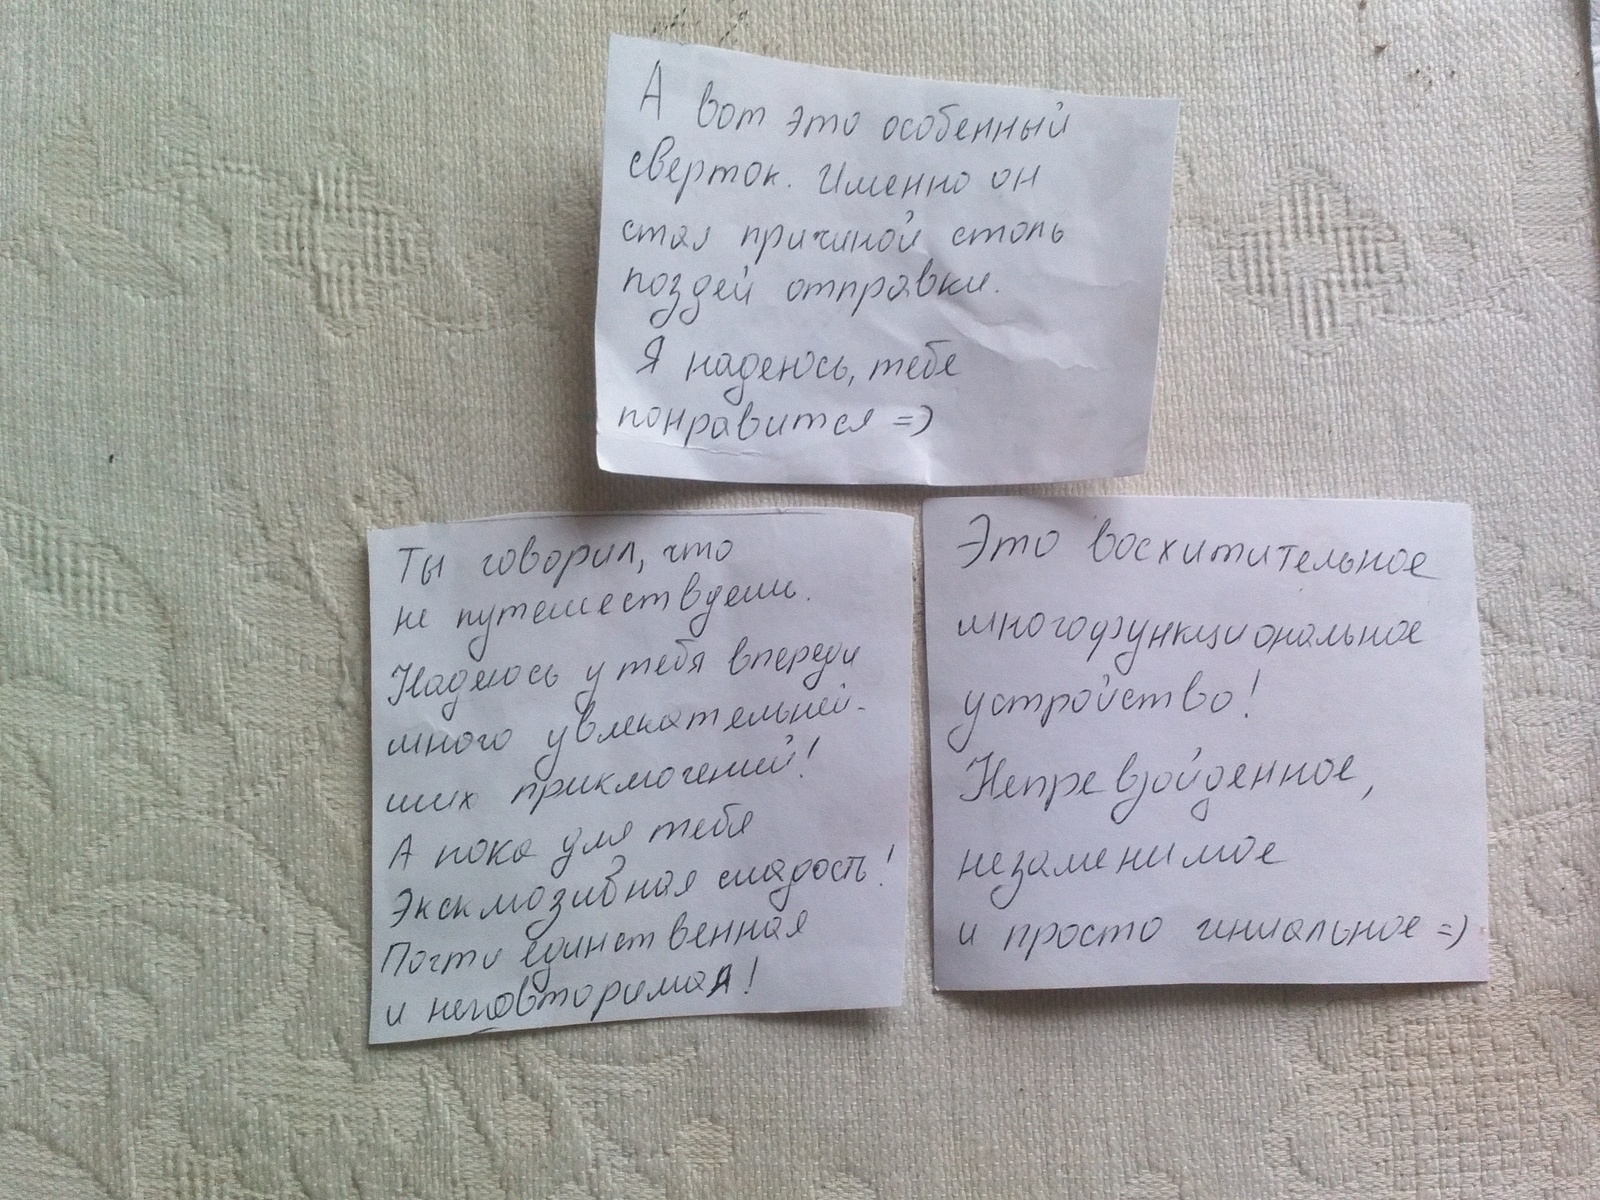 А вот это особенный
сверток. Именно он
стал причиной столь
поздей отправки.
Я надеюсь, тебе
понравится =)
Ты говорил, что
не путешествуешь.
Надеюсь у тебя впереди
много увлекательней-
ших приключений!
А пока для тебя
Эксклюзивная сладость!
Почти единственная
и неповторимая!
Это восхитительное
многофункциональное
устройство!
Непревзойденное,
незаменимое
и просто гениальное =)